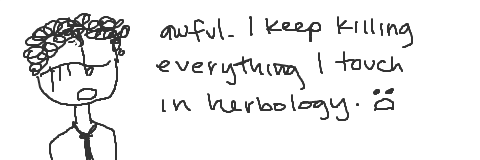 awful. I keep killing
everything I touch
in herbology. ☹